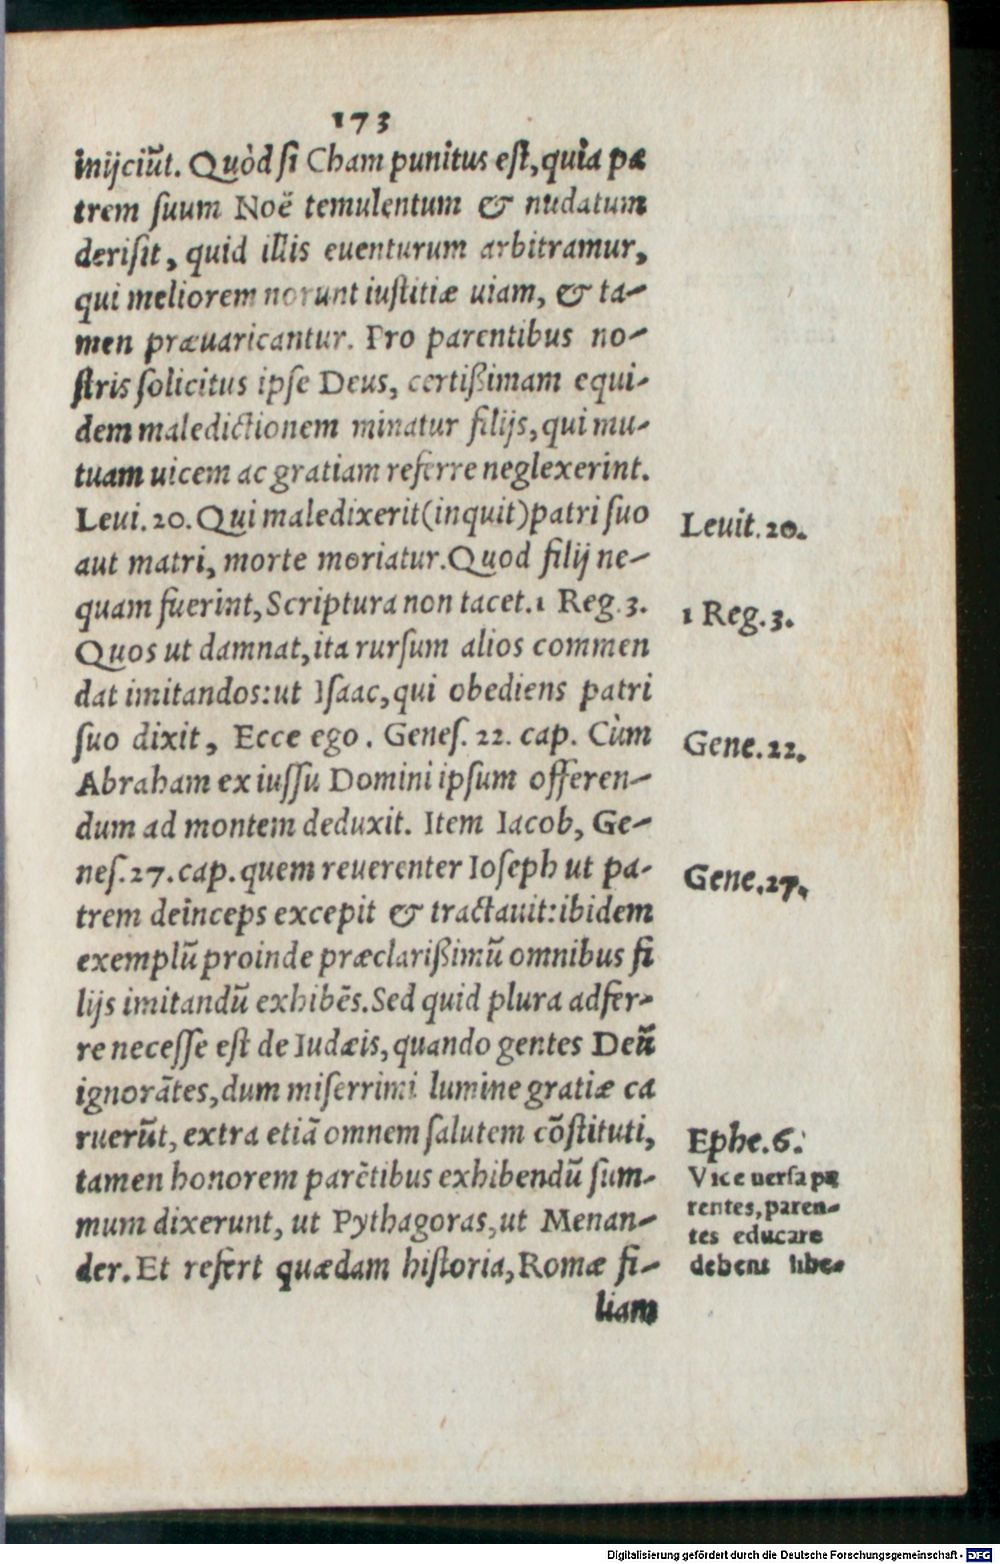 173
inijciũt. Quòd ſi Cham punitus eſt, quia pa
trem ſuum Noë temulentum & nudatum
deriſit, quid illis euenturum arbitramur,
qui meliorem norunt iuſtitiæ uiam, & ta-
men præuaricantur. Pro parentibus no-
ſtris ſolicitus ipſe Deus, certißimam equi-
dem maledictionem minatur filijs, qui mu-
tuam uicem ac gratiam referre neglexerint.
Leui. 20. Qui maledixerit (inquit) patri ſuo
aut matri, morte moriatur. Quod filij ne-
quam fuerint, Scriptura non tacet. 1 Reg. 3.
Quos ut damnat, ita rurſum alios commen
dat imitandos: ut Iſaac, qui obediens patri
ſuo dixit, Ecce ego. Geneſ. 22. cap. Cùm
Abraham ex iuſſu Domini ipſum offeren-
dum ad montem deduxit. Item Iacob, Ge-
neſ. 27. cap. quem reuerenter Ioſeph ut pa-
trem deinceps excepit & tractauit: ibidem
exemplũ proinde præclarißimũ omnibus fi
lijs imitandũ exhibẽs. Sed quid plura adfer-
re neceſſe eſt de Iudæis, quando gentes Deũ
ignorãtes, dum miſerrimi lumine gratiæ ca
ruerũt, extra etiã omnem ſalutem cõſtituti,
tamen honorem parẽtibus exhibendũ ſum-
mum dixerunt, ut Pythagoras, ut Menan-
der. Et refert quædam hiſtoria, Romæ fi-
liam
Leuit. 20.
1 Reg. 3.
Gene. 22.
Gene. 27.
Ephe. 6.
Vice uerſa pa
rentes, paren-
tes educare
debent libe-
Digitalisierung gefördert durch die Deutsche Forschungsgemeinschaft - DFG